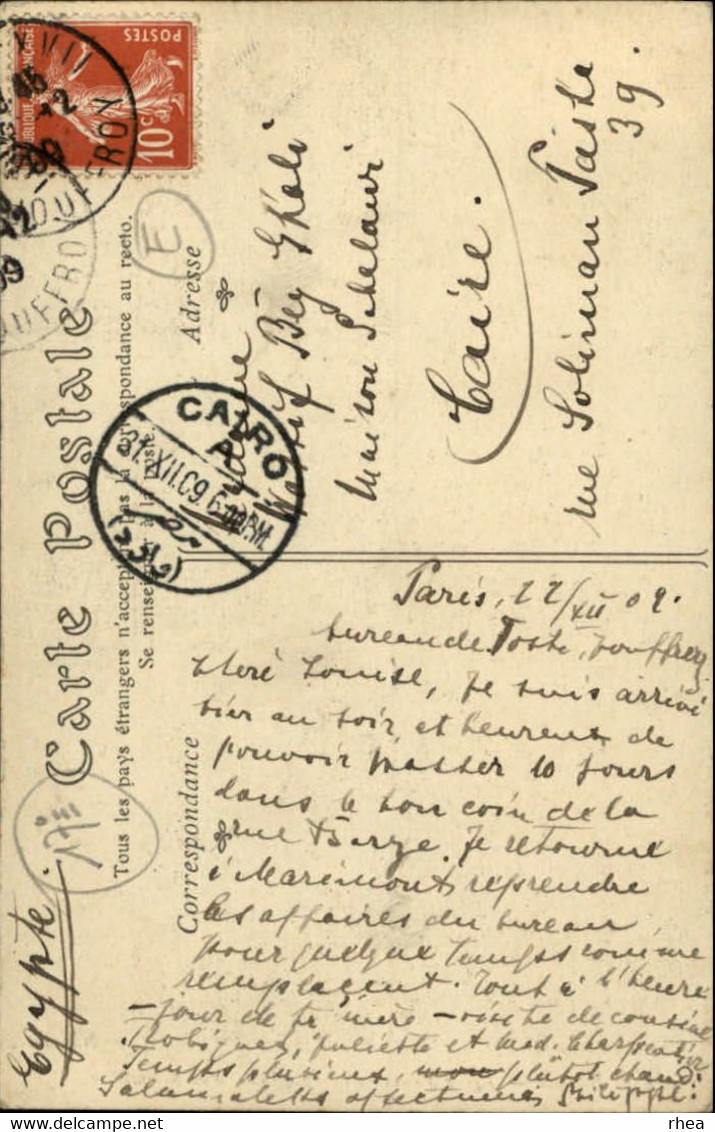 Carte Postale
Tous les pays étrangers n'acceptent pas la correspondance au recto.
Se renseigner à la poste.
Egypte.
17e
E
POSTES
10c
CAIRO
A
31.XII.09 6. PM
Adresse
Bey Ghali
Maison Sehelawi
Caire.
rue Soliman Pasha
39.
Correspondance
Paris, 22/XII 09.
bureau de Poste, Jouffroy
Chere Louise, Je suis arrivé
hier au soir, et heureux de
pouvoir passer 10 jours
dans le bon coin de la
rue Je retourne
à Marimont reprendre
les affaires du bureau
pour quelque temps comme
remplaçant. Tout à l'heure
– jour de ta mère – visite de cousine
Juliette et Mad. Charpentier
Temps pluvieux, plûtot chaud.
Salamaleks affectueux Philippe.
rhea